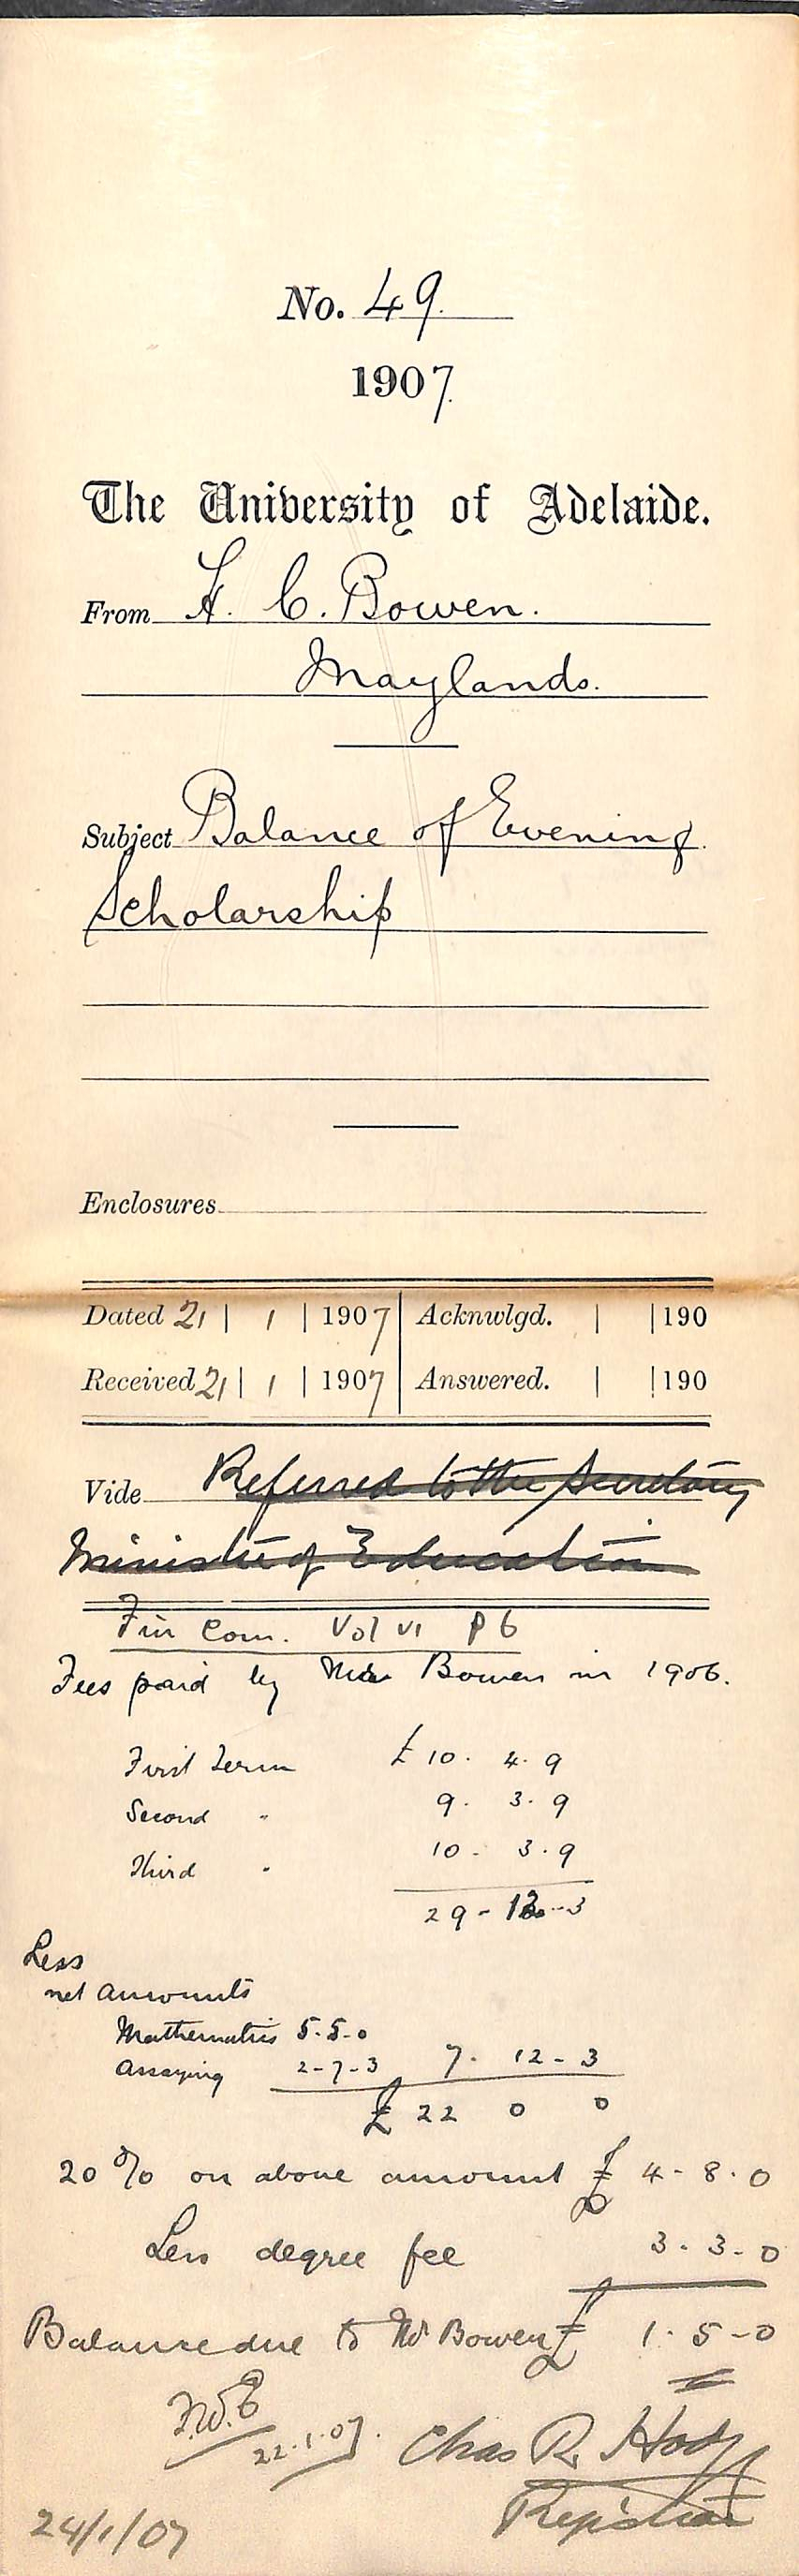 No. 49.
1907.
The University of Adelaide.
From H. C. Bowen.
Maylands.
Subject Balance of Evening
Scholarship
Enclosures
Dated 21 | 1 | 1907 | Acknwlgd. | | 190
Received 21 | 1 | 1907 | Answered. | | 190
Vide Referred to the Secretary
Minister of Education
Fin Com. Vol VI P 6
Fees paid by Bowen in 1906.
First Term £10. 4. 9
Second " 9. 3. 9
Third " 10. 3. 9
29-12-3
Less
net amounts
Mathematics 5.5.0
Assaying 2-7-3 7. 12-3
£ 22 0 0
20% on above amount £ 4-8.0
Less degree fee 3.3.0
Balance due to Mr Bowen £ 1.5-0
F.W.E
22.1.07. Chas R. Hodge
Registrar
24/1/07